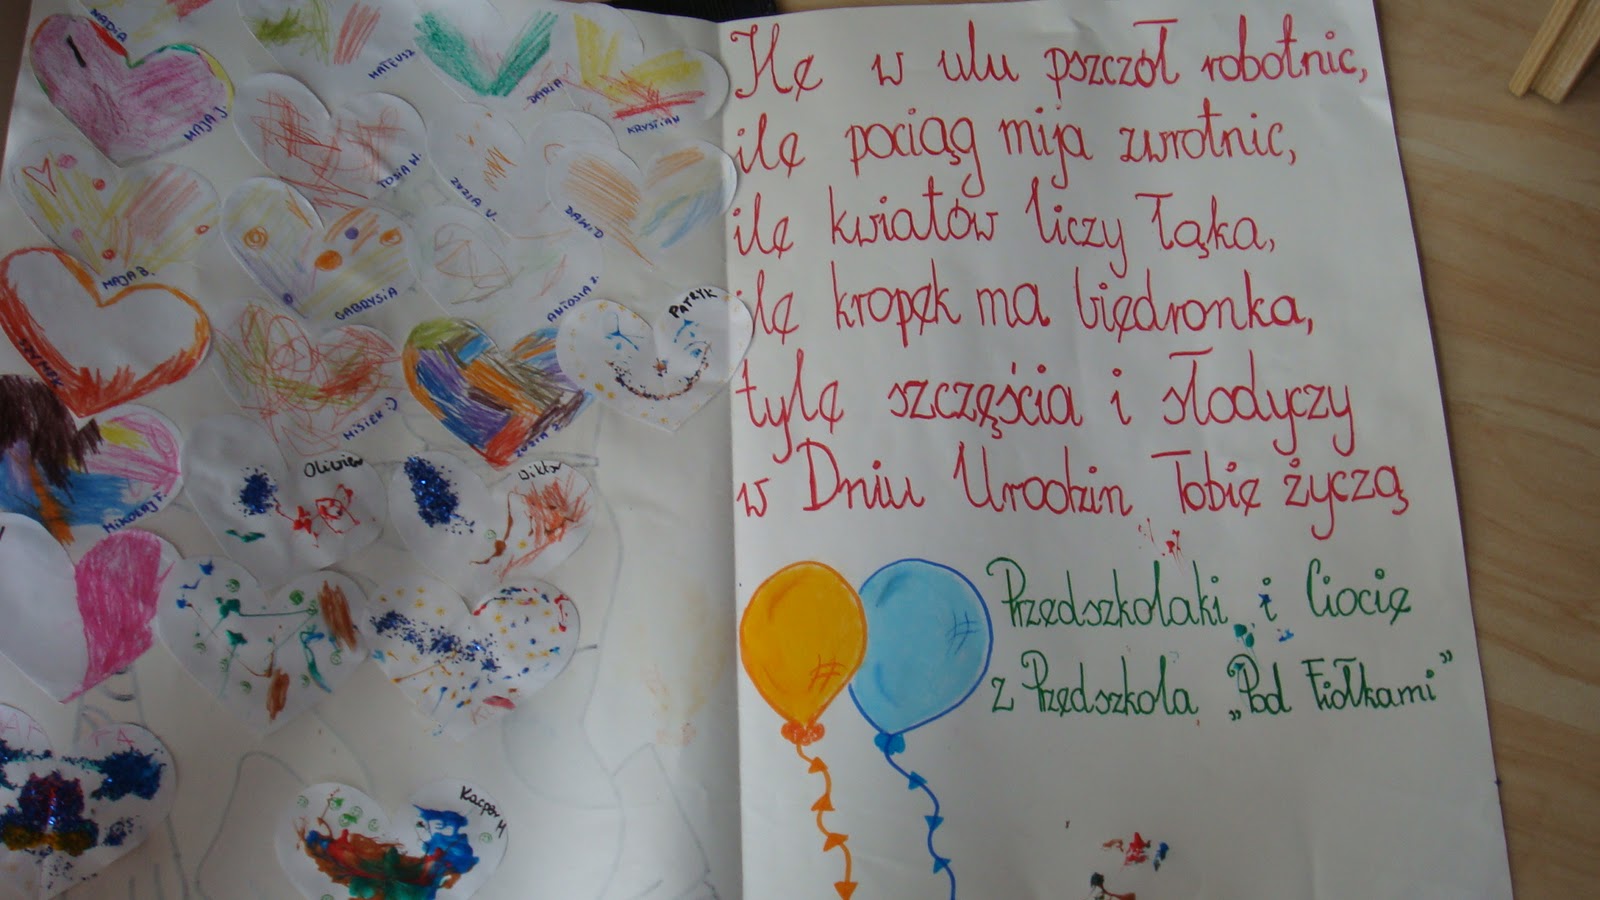 NADIA
MATEUSZ
DARIA
KRYSTIAN
MAJA J.
TOSIA W.
ZUZIA V.
DAWID
MAJA B.
GABRYSIA
ANTOSIA Z.
PATRYK
SZYMEK
MISIEK :)
ZUZIA Z.
MIKOŁAJ F.
Oliwier
Wiktor
Kacper M
Ile w ulu pszczół robotnic,
ile pociąg mija zwrotnic,
ile kwiatów liczy łąka,
ile kropek ma biedronka,
tyle szczęścia i słodyczy
w Dniu Urodzin Tobie życzą
Przedszkolaki i Ciocie
z Przedszkola „Pod Fiołkami”